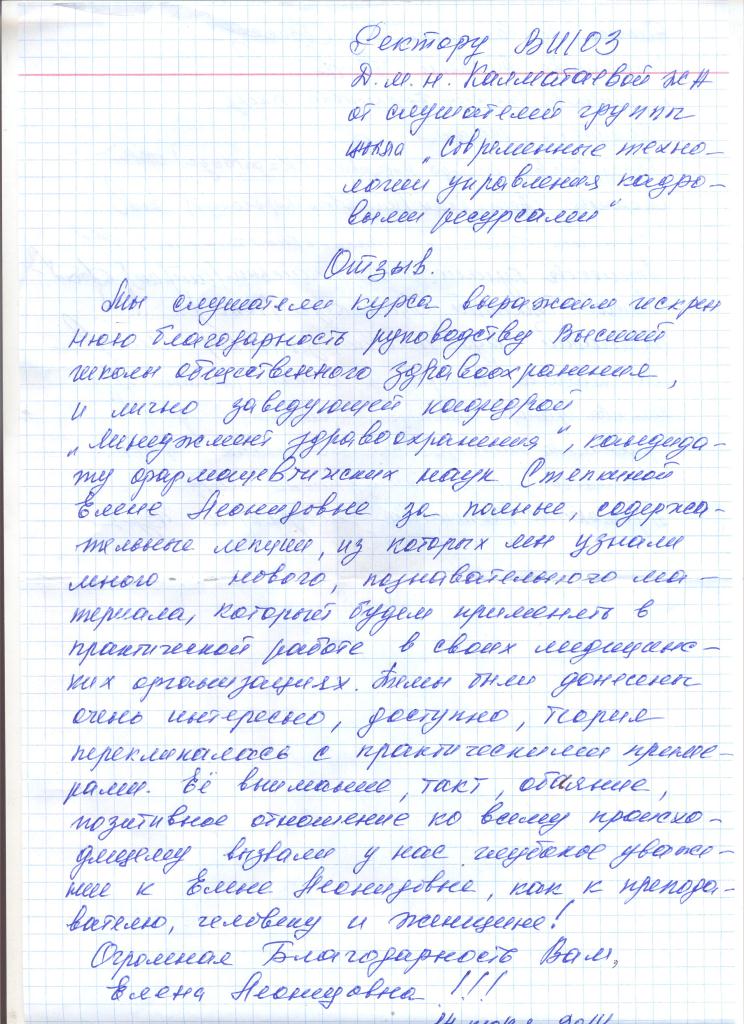 Ректору ВШОЗ
Д.м.н. Калматаевой ЖА
от слушателей группы
цикла „Современные техно-
логии управления кадро-
выми ресурсами"
Отзыв.
Мы слушатели курса выражаем искрен
нюю благодарность руководству Высшей
школы общественного здравоохранения,
и лично заведующей кафедрой
„Менеджмент здравоохранения", кандида-
ту фармацевтических наук Степкиной
Елене Леонидовне за полные, содержа-
тельные лекции, из которых мы узнали
много нового, познавательного ма-
териала, который будем применять в
практической работе в своих медицинс-
ких организациях. Темы были донесены
очень интересно, доступно, теория
перекликалась с практическими приме-
рами. Её внимание, такт, обаяние,
позитивное отношение ко всему происхо-
дящему вызвали у нас глубокое уваже-
ние к Елене Леонидовне, как к препода-
вателю, человеку и женщине!
Огромная Благодарность Вам,
Елена Леонидовна !!!
14